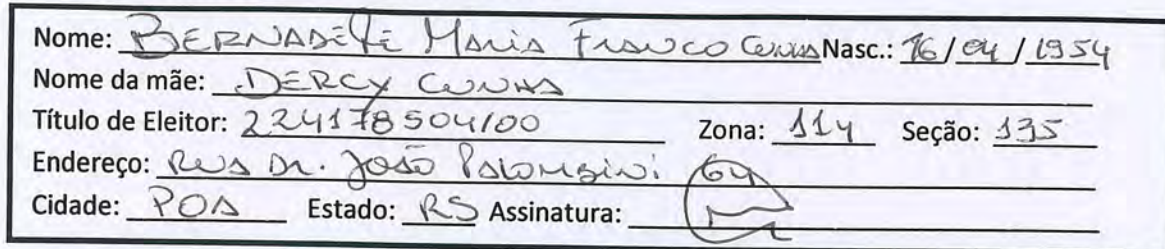 Nome: BERNADETE MARIA FRANCO CUNHA Nasc.: 16/04/1954
Nome da mãe: DERCY CUNHA
Título de Eleitor: 224178504/00 Zona: 114 Seção: 135
Endereço: RUA DR. JOÃO PALOMBINI 64
Cidade: POA Estado: RS Assinatura: